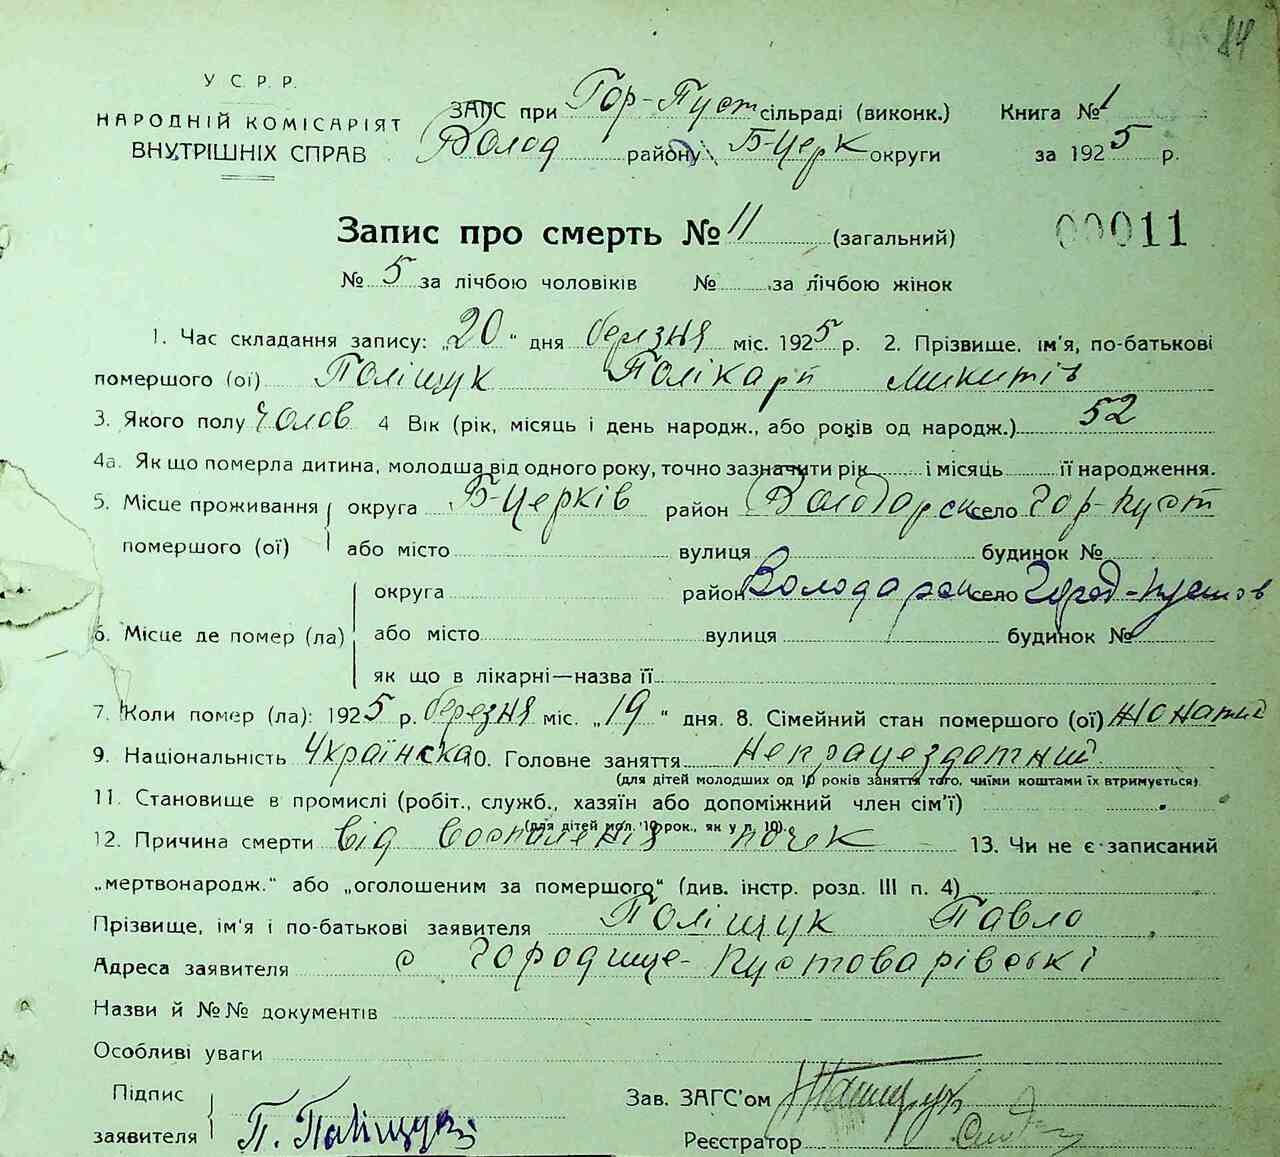 84
У С. Р. Р.
НАРОДНІЙ КОМІСАРІЯТ
ВНУТРІШНІХ СПРАВ
ЗАГС при Гор-Пуст сільраді (виконк.)
Волод району Б-Церк округи
Книга № 1
за 1925 р.
Запис про смерть № 11 (загальний)
00011
№ 5 за лічбою чоловіків № за лічбою жінок
1. Час складання запису: „20“ дня березня міс. 1925 р. 2. Прізвище, ім'я, по-батькові
помершого (ої) Поліщук Полікарп Микитів
3. Якого полу Чолов 4 Вік (рік, місяць і день народж., або років од народж.) 52
4а. Як що померла дитина, молодша від одного року, точно зазначити рік і місяць її народження.
5. Місце проживання округа Б-Церків район Володарск село Гор-Пуст
помершого (ої) або місто вулиця будинок №
округа район Володарск село Город-Пустов
6. Місце де помер (ла) або місто вулиця будинок №
як що в лікарні—назва її
7. Коли помер (ла): 1925 р. березня міс. „19“ дня. 8. Сімейний стан помершого (ої) жонатий
9. Національність Українська 10. Головне заняття Непрацездатний
(для дітей молодших од 10 років заняття того, чиїми коштами їх втримується)
11. Становище в промислі (робіт., служб., хазяїн або допоміжний член сім'ї)
(для дітей мол. 10 рок., як у п. 10).
12. Причина смерти від воспаленія почек 13. Чи не є записаний
„мертвонародж.“ або „оголошеним за помершого“ (див. інстр. розд. III п. 4)
Прізвище, ім'я і по-батькові заявителя Поліщук Павло
Адреса заявителя с Городище-Пустоварівські
Назви й №№ документів
Особливі уваги
Підпис
заявителя П. Поліщук
Зав. ЗАГС'ом
Реєстратор